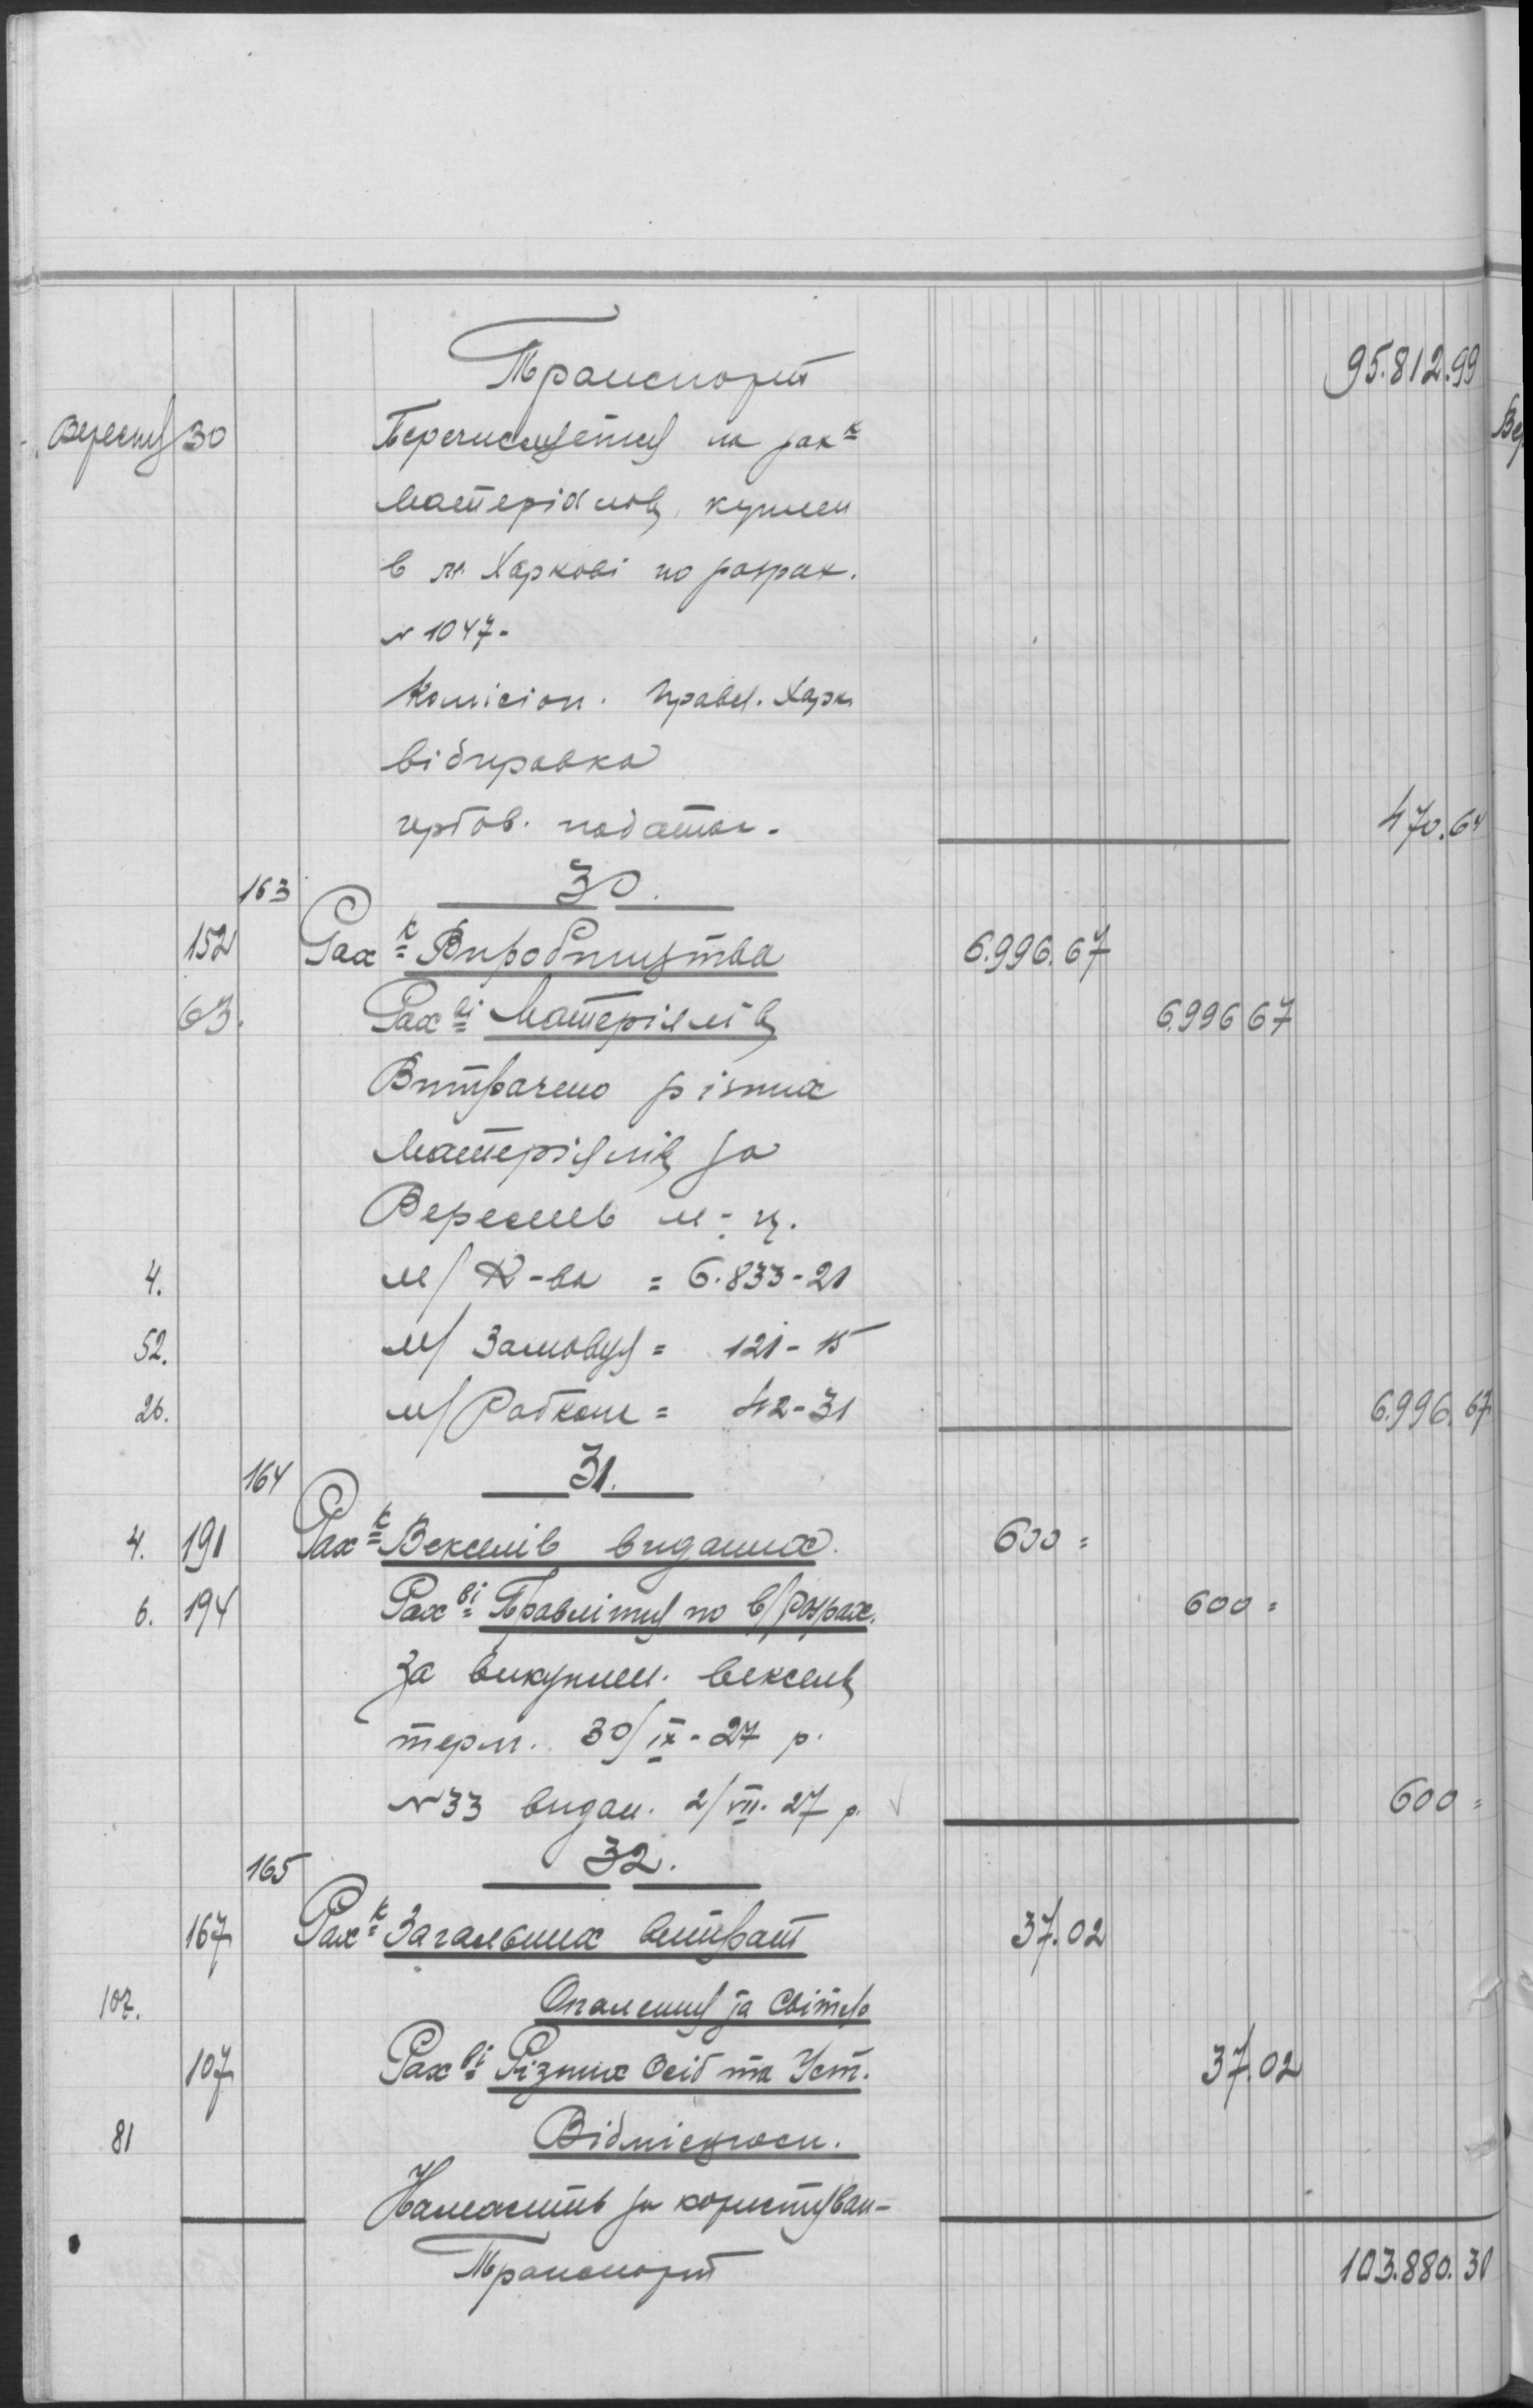 Транспорт 95.812.99
Вересня 30 Перечисляєтця на рах к
матеріялів, куплен
в м. Харкові по розрах.
№ 1047-
Комісіон. Правл. Харк.
відправка
гербов. податок. 470.64
163 30.
152 Рах к Виробництва 6.996.67
63. Рах ві Матеріялів 6.996 67
Витрачено різних
матеріялів за
Вересень м-ц.
4. м/ К-ва = 6.833-21
52. м/ Замовця = 121-15
26. м/ Робком = 42-31 6.996.67
164 31.
4. 191 Рах к Векселів виданих. 600=
6. 194 Рах ві Правлінця по в/розрах. 600=
За викуплен. вексель
терм. 30/IX-27 р.
№33 видан. 2/VII-27 р. 600=
165 32.
167 Рах к Загальних витрат 37.02
107. Опалення та Світло
107 Рах ві Різних Осіб та Уст. 37.02
81 Відмісцгосп.
Належить за користуван-
Транспорт 103.880.30